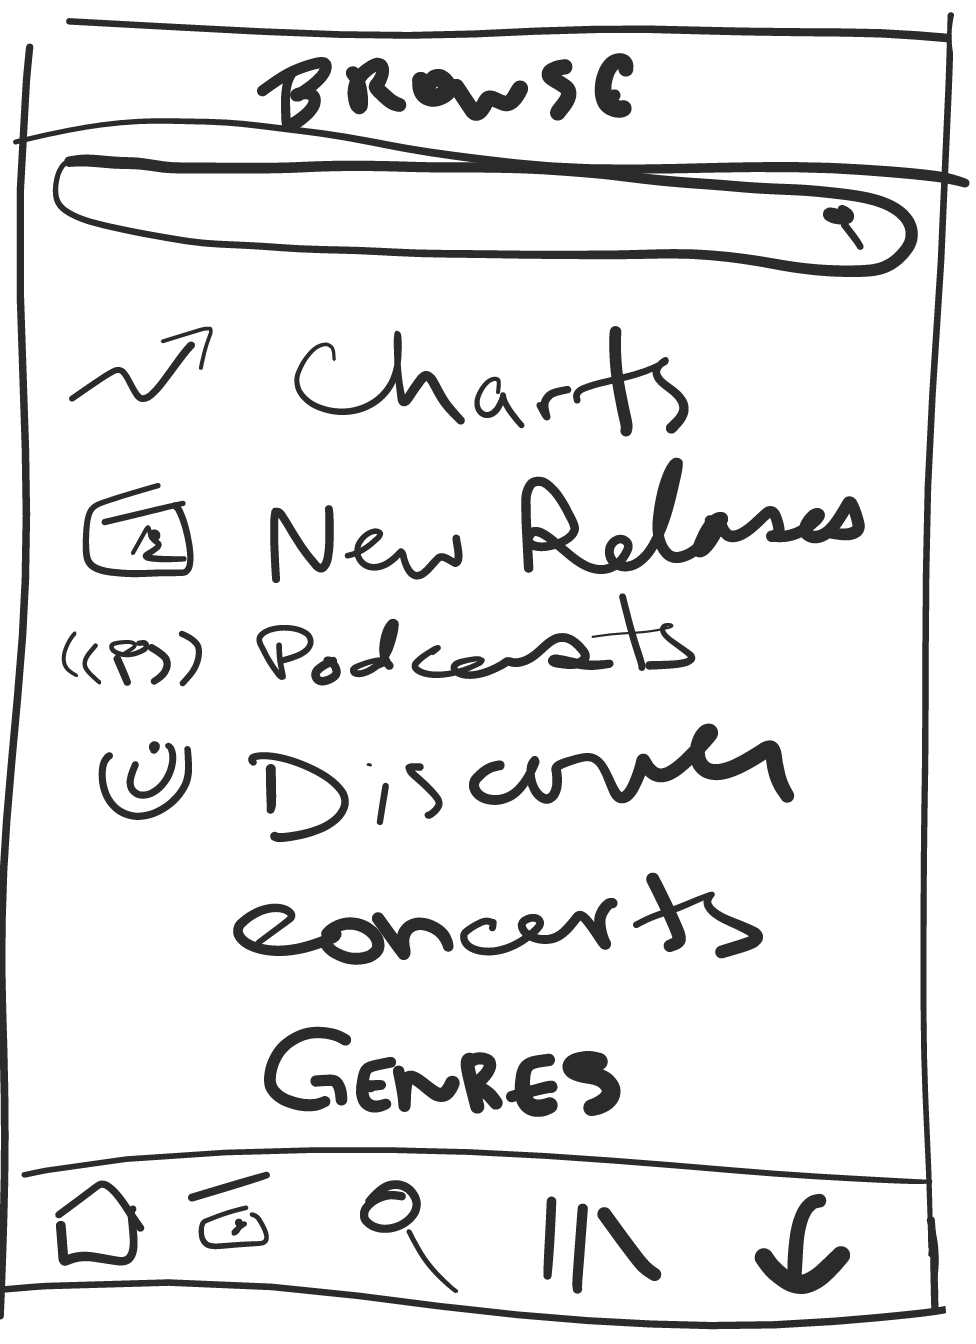 BROWSE
Charts
New Relases
Podcasts
Discover
concerts
GENRES